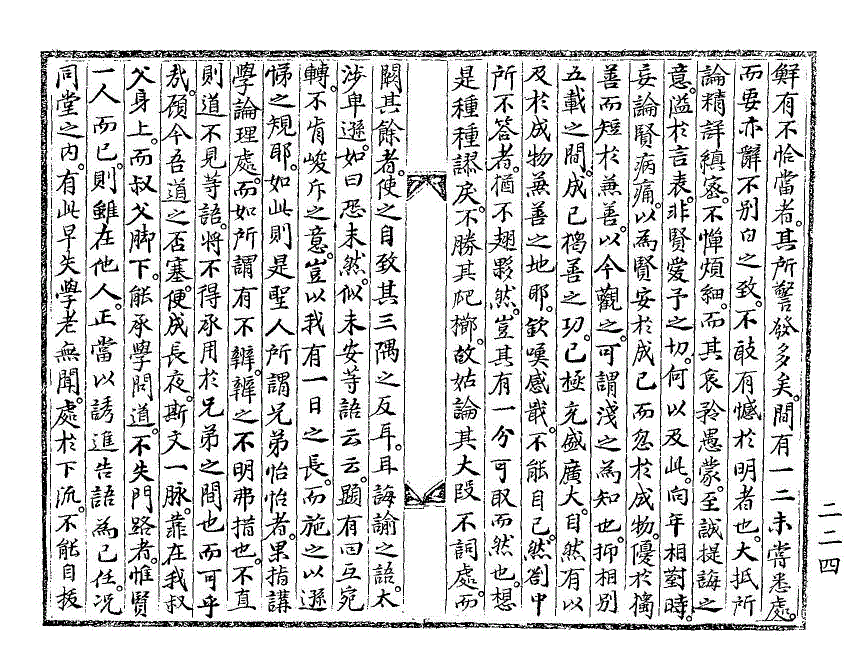 鮮有不恰當者其所警發多矣間有一二未嘗悉處
而要亦辭不別白之致不敢有憾於明者也大抵所
論精詳縝密不憚煩細而其哀矜愚蒙至誠提誨之
意溢於言表非賢愛予之切何以及此向年相對時
妄論賢病痛以為賢安於成己而忽於成物優於獨
善而短於兼善以今觀之可謂淺之為知也抑相別
五載之間成己獨善之功已極充盛廣大自然有以
及於成物兼善之地耶欽嘆感戢不能自已然劄中
所不答者猶不翅夥然豈其有一分可取而然也想
是種種謬戾不勝其爬櫛故姑論其大段不詞處而
闕其餘者使之自致其三隅之反耳耳誨諭之語太
涉卑遜如曰恐未然似未安等語云云顯有回互宛
轉不肯峻斥之意豈以我有一日之長而施之以遜
悌之規耶如此則是聖人所謂兄弟怡怡者果指講
學論理處而如所謂有不辨辨之不明弗措也不直
則道不見等語將不得承用於兄弟之間也而可乎
哉顧今吾道之否塞便成長夜斯文一脉靠在我叔
父身上而叔父脚下能承學問道不失門路者惟賢
一人而已則雖在他人正當以誘進告語為己任况
同堂之內有此早失學老無聞處於下流不能自拔
二二四